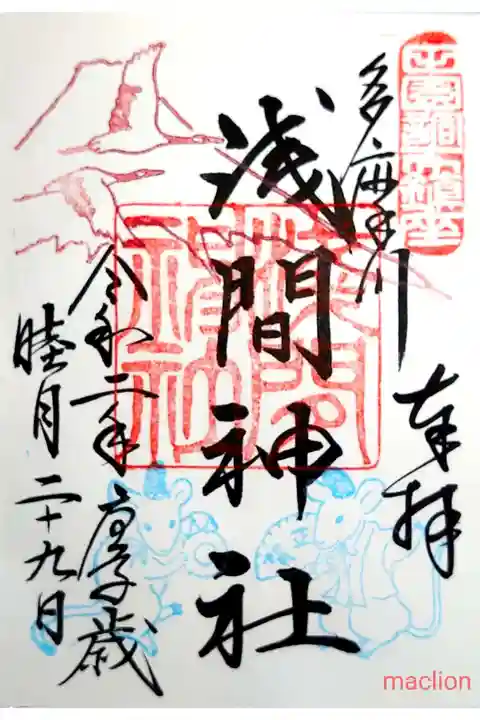 奉拝
多麻川
浅間神社
令和二年庚子歳
睦月二十九日
浅間神社
maclion